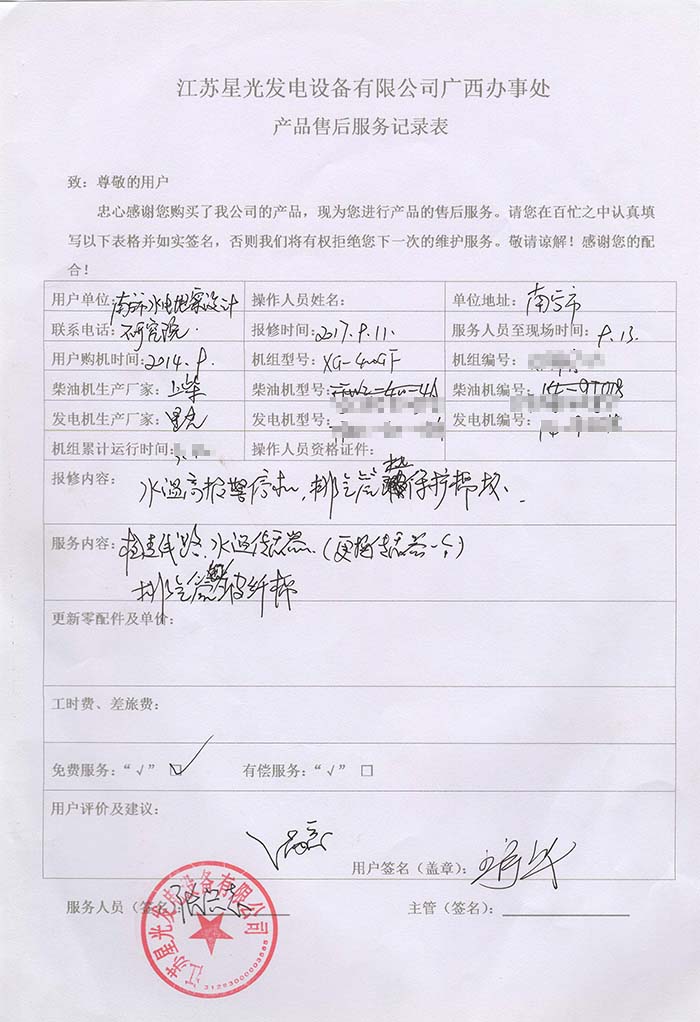 江苏星光发电设备有限公司广西办事处
产品售后服务记录表
致：尊敬的用户
忠心感谢您购买了我公司的产品，现为您进行产品的售后服务。请您在百忙之中认真填
写以下表格并如实签名，否则我们将有权拒绝您下一次的维护服务。敬请谅解！感谢您的配
合！
用户单位：南宁市水电地质设计 操作人员姓名： 单位地址：南宁市
联系电话：研究院. 报修时间：2017.9.11. 服务人员至现场时间：9.13.
用户购机时间：2014.9. 机组型号：XG-400GF 机组编号：
柴油机生产厂家：上柴 柴油机型号： 柴油机编号：
发电机生产厂家：星光 发电机型号： 发电机编号：
机组累计运行时间： 操作人员资格证件：
报修内容：水温高报警停机，排气管 保护棉坏.
服务内容：检查线路、水温传感器.（更换传感器一个）
排气管 玻纤棉
更新零配件及单价：
工时费、差旅费：
免费服务：“√” ☑ 有偿服务：“√” □
用户评价及建议：
用户签名（盖章）：
服务人员（签名）： 主管（签名）：
江苏星光发电设备有限公司